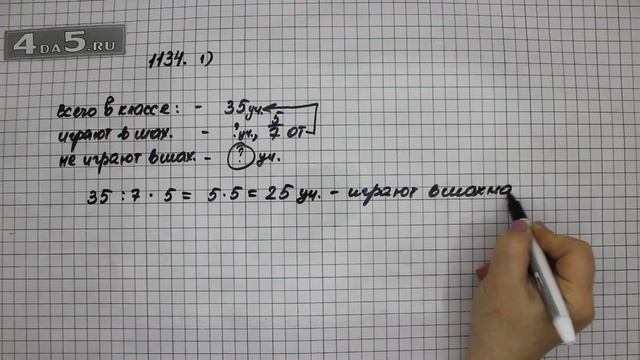 4DA5.RU
1134. 1)
всего в классе: - 35 уч.
играют в шах. - ? уч., 5/7 от
не играют в шах. - ? уч.
35 : 7 · 5 = 5 · 5 = 25 уч. - играют в шахма